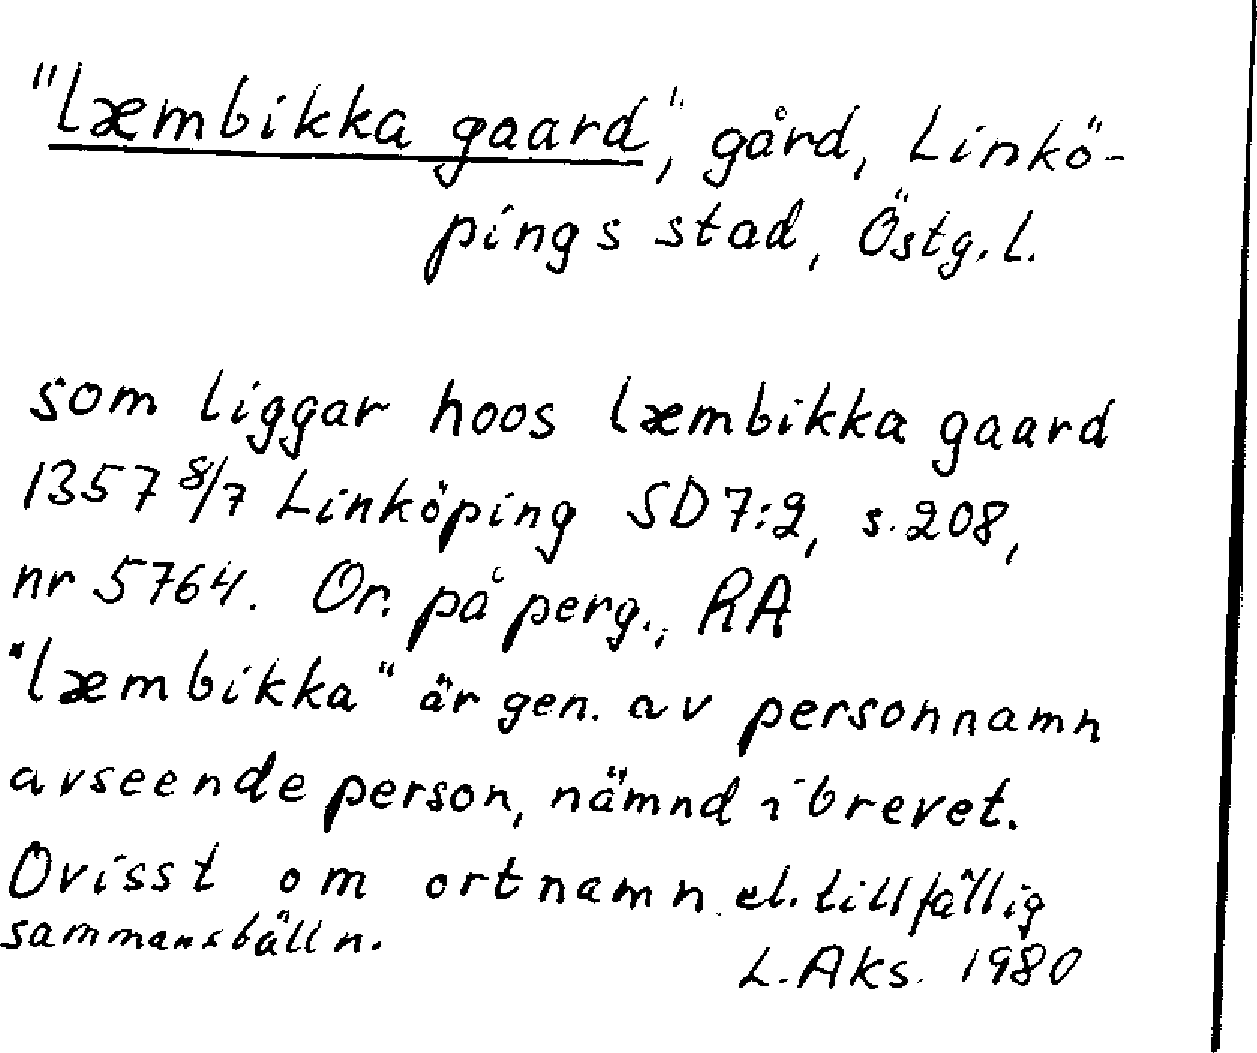 "læmbikka gaard", gård, Linkö-
pings stad, Östg.l.
som liggar hoos læmbikka gaard
1357 8/7 Linköping SD 7:2, s. 208,
nr 5764. Or. på perg., RA
"læmbikka" är gen. av personnamn
avseende person, nämnd i brevet.
Ovisst om ortnamn el. tillfällig
sammanställn.
L. Aks. 1980